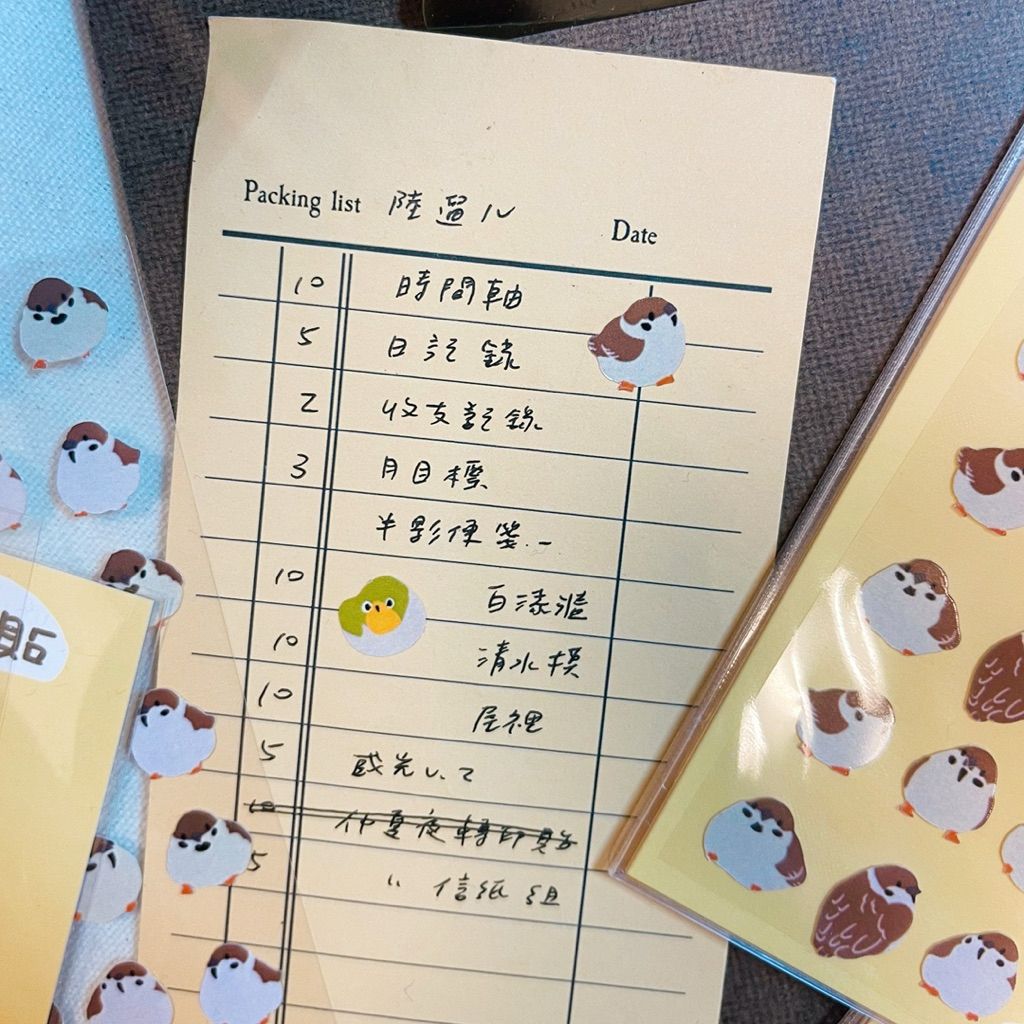 Packing list 陸溫ル Date
10 時間軸
5 日記錄
2 收支記錄
3 月目標
半影便箋 -
10
10 清水模
10 屋裡
5
10 仲夏夜轉印貼
5 〃 信紙組
貼